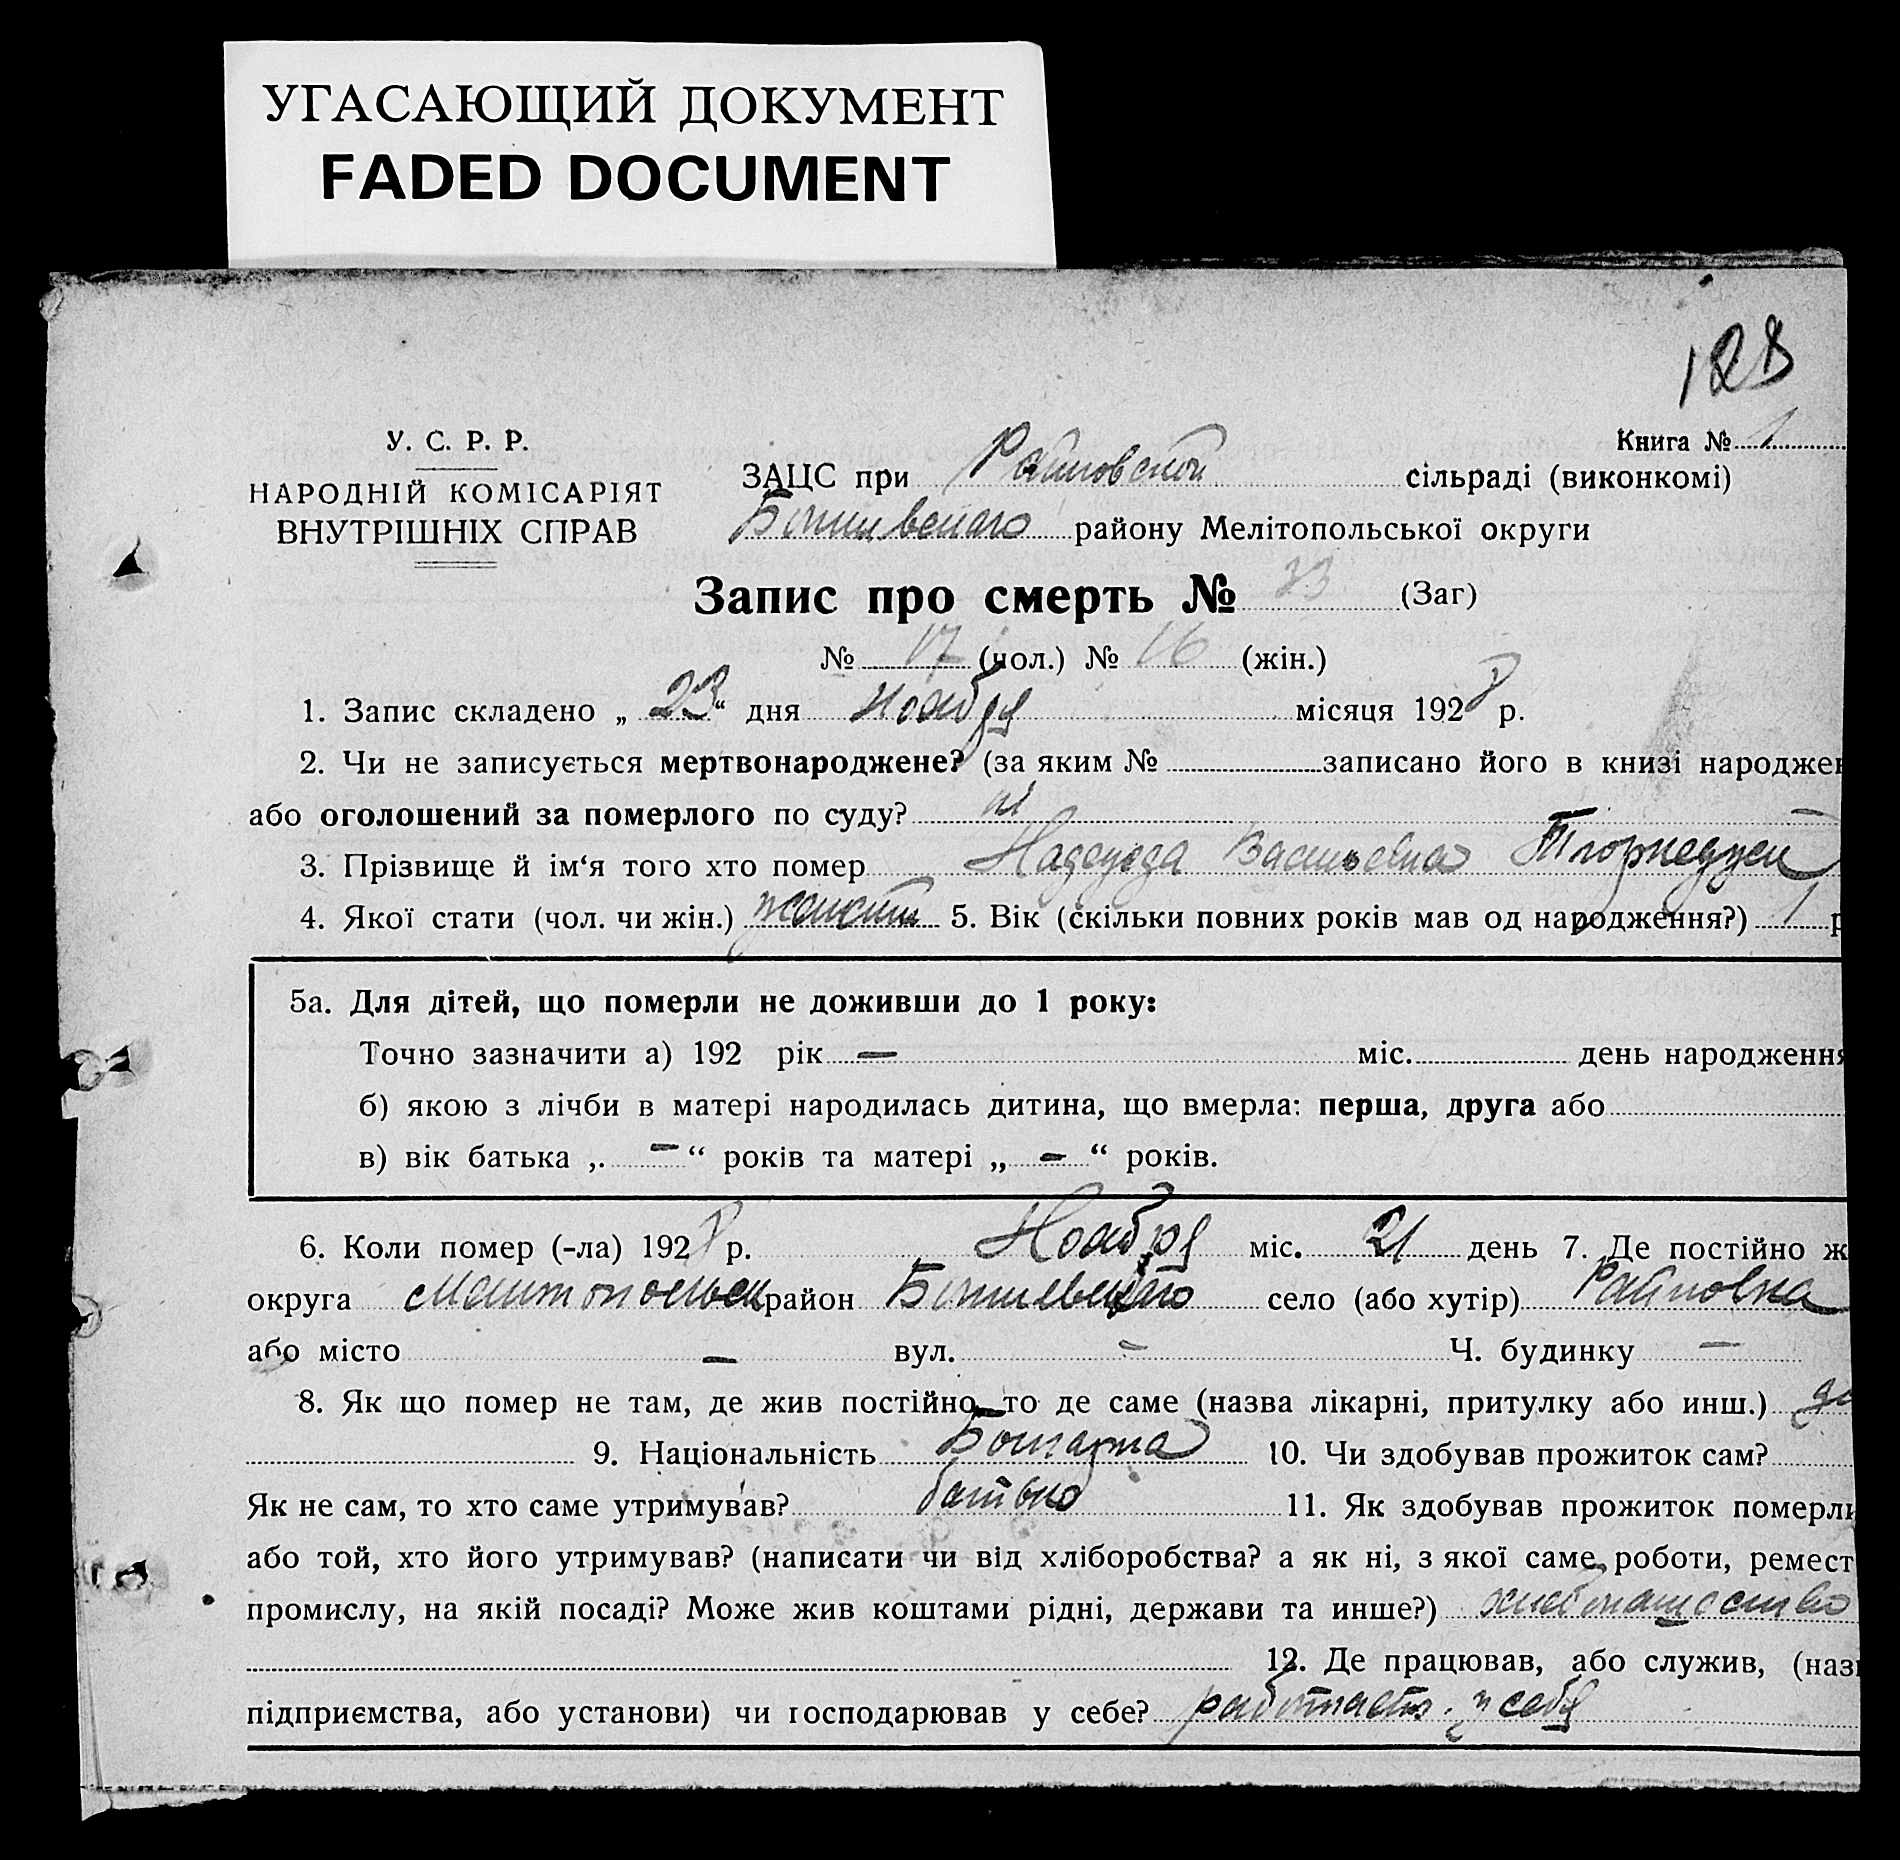 УГАСАЮЩИЙ ДОКУМЕНТ
FADED DOCUMENT
128
Книга № 1
У. С. Р. Р.
НАРОДНІЙ КОМІСАРІЯТ
ВНУТРІШНІХ СПРАВ
ЗАЦС при Райновской сільраді (виконкомі)
району Мелітопольської округи
Запис про смерть № 33 (Заг)
№ 17 (чол.) № 16 (жін.)
1. Запис складено „ 23 “ дня Ноября місяця 1928 р.
2. Чи не записується мертвонароджене? (за яким № записано його в книзі народжен
або оголошений за померлого по суду? ні
3. Прізвище й ім‘я того хто помер Надежда Васильевна
4. Якої стати (чол. чи жін.) женский 5. Вік (скільки повних років мав од народження?) 1 р
5а. Для дітей, що померли не доживши до 1 року:
Точно зазначити а) 192 рік — міс. день народження
б) якою з лічби в матері народилась дитина, що вмерла: перша, друга або
в) вік батька „ — “ років та матері „ — “ років.
6. Коли помер (-ла) 1928 р. Ноября міс. 21 день 7. Де постійно ж
округа район село (або хутір) Райновка
або місто — вул. — Ч. будинку —
8. Як що помер не там, де жив постійно, то де саме (назва лікарні, притулку або инш.)
9. Національність Болгарка 10. Чи здобував прожиток сам?
Як не сам, то хто саме утримував? батько 11. Як здобував прожиток померли
або той, хто його утримував? (написати чи від хліборобства? а як ні, з якої саме роботи, ремест
промислу, на якій посаді? Може жив коштами рідні, держави та инше?) хлебопашество
12. Де працював, або служив, (наз
підприємства, або установи) чи господарював у себе? работает у себя